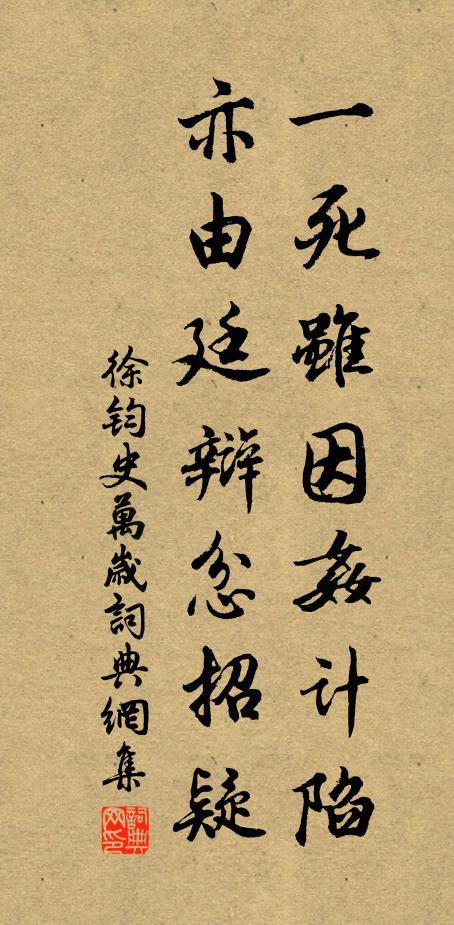 一死雖因姦計陷
亦由廷辯忿招疑
徐鈞史萬歲詞典網集
詞典网印